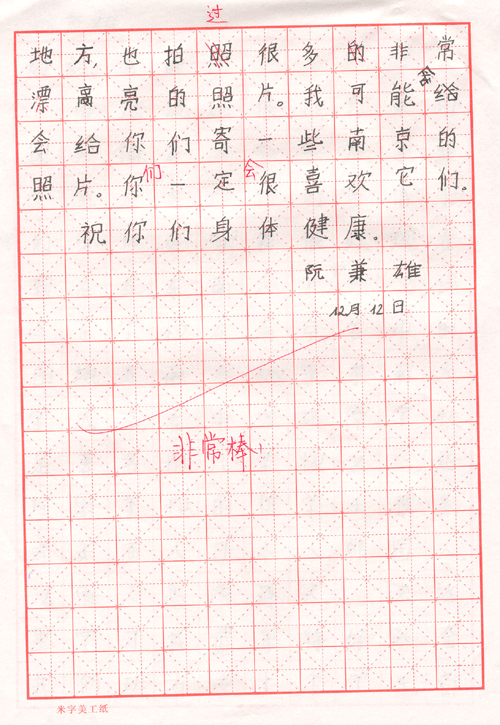 过
地方,也拍照很多的非常
漂离亮的照片。我可能会给
会给你们寄一些南京的
照片。你们一定会很喜欢它们。
祝你们身体健康。
阮兼雄
12月12日
非常棒!
米字美工纸